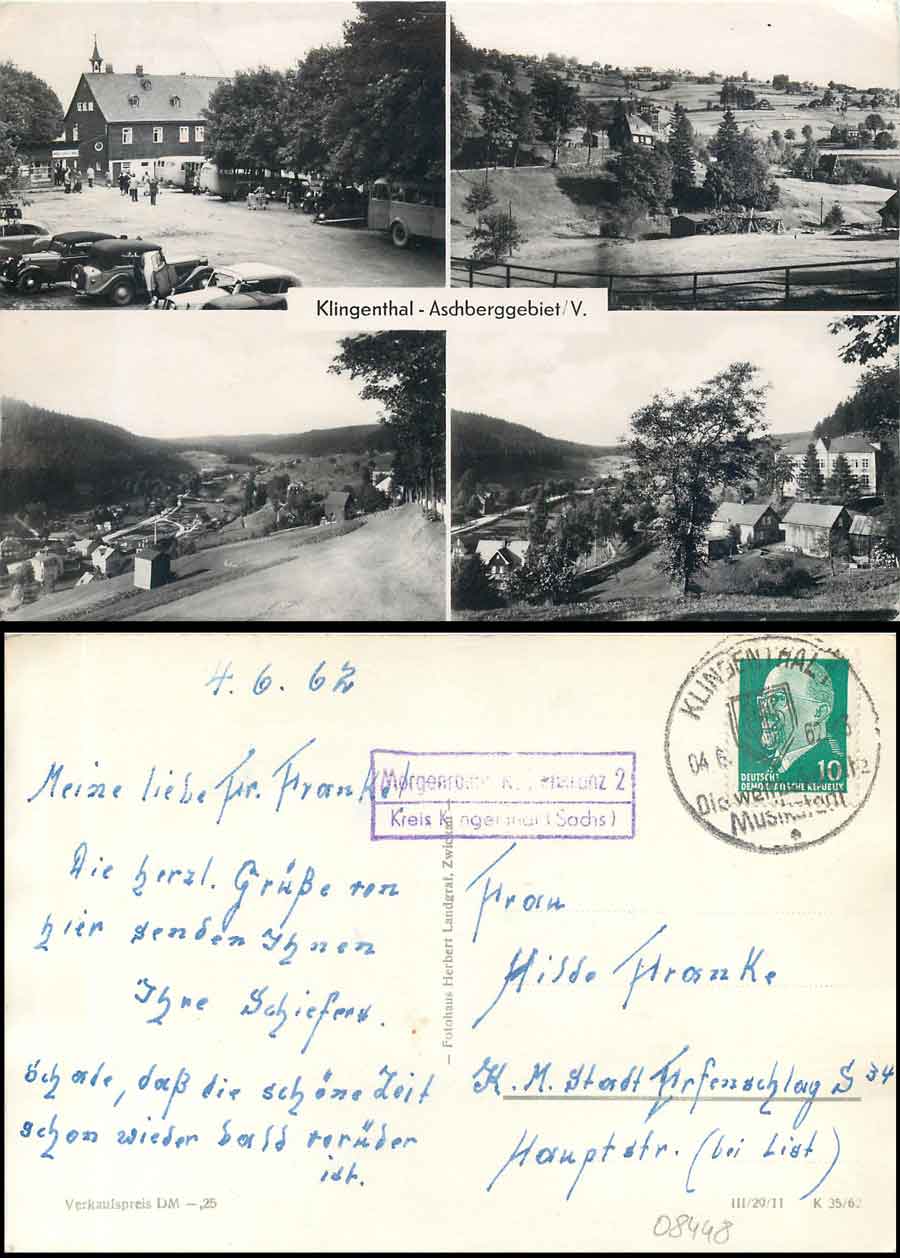 Klingenthal - Aschberggebiet/V.
4.6.62
Meine liebe Fr. Franke!
Die herzl. Grüße von
hier senden Ihnen
Ihre Schiefers.
Schade, daß die schöne Zeit
schon wieder bald vorüber
ist.
Verkaufspreis DM –,25
– Fotohaus Herbert Landgraf, Zwickau –
2
Kreis Klingenthal (Sachs)
KLINGENTHAL
04.6.
Die
DEUTSCHE
DEMOKRATISCHE REPUBLIK
10
Frau
Hilde Franke
K. M. Stadt Erfenschlag S 34
Hauptstr. (bei List)
III/29/11 K 35/62
08448